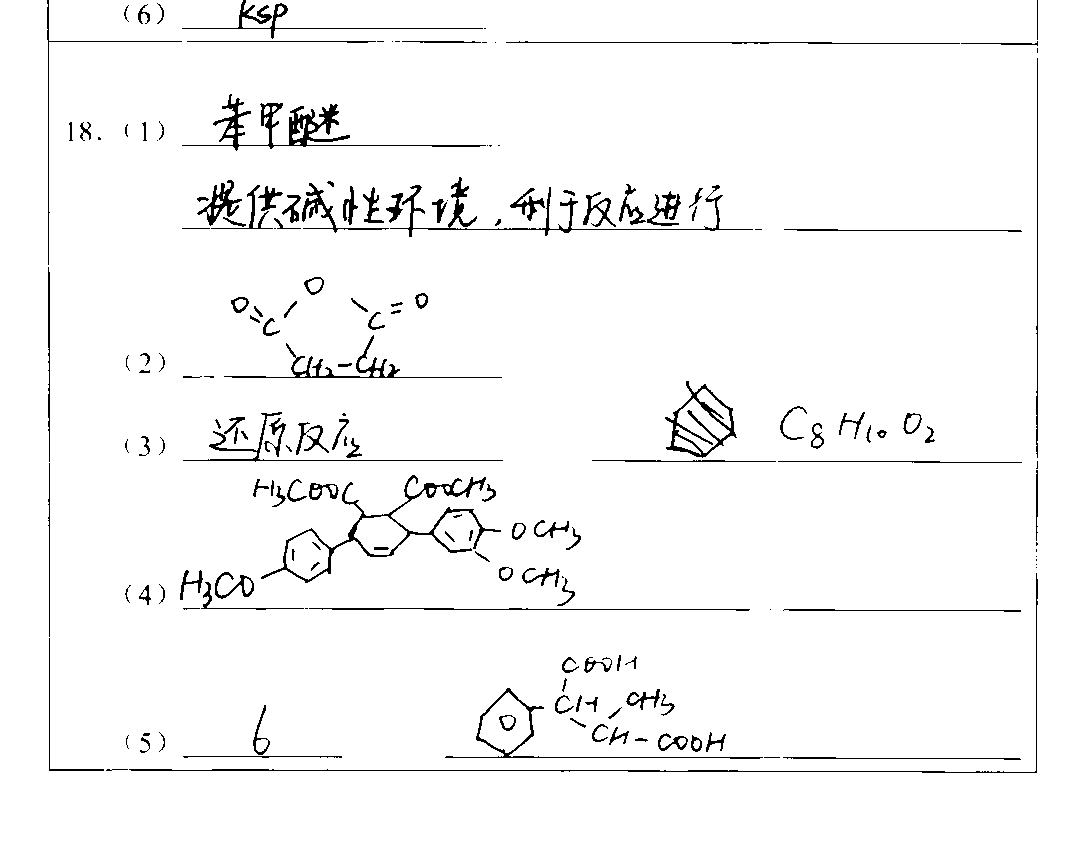 （6） Ksp
18.（1） 苯甲醚
提供碱性环境，利于反应进行
O
O=C C=O
（2） CH2-CH2
（3） 还原反应 C8H10O2
H3COOC COOCH3
OCH3
（4） H3CO OCH3
COOH
CH CH3
（5） 6 CH-COOH